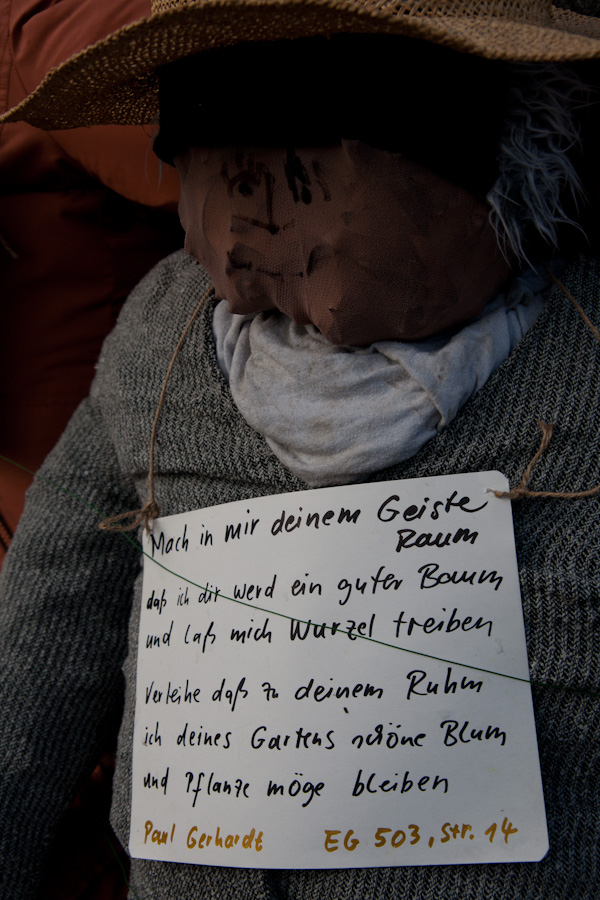 Mach in mir deinem Geiste
Raum
daß ich dir werd ein guter Baum
und laß mich Wurzel treiben
Verleihe daß zu deinem Ruhm
ich deines Gartens schöne Blum
und Pflanze möge bleiben
Paul Gerhardt EG 503, Str. 14